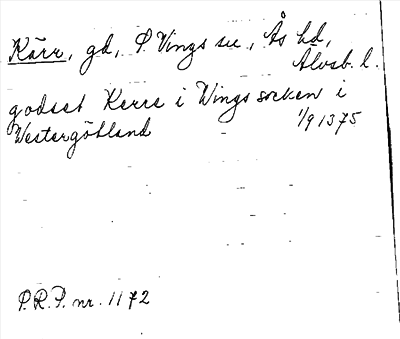 Kärr, gd, S. Vings sn, Ås hd,
Älvsb. l.
godset Kerre i Wings socken i
Westergötland 1/9 1375
P.R.P. nr. 1172